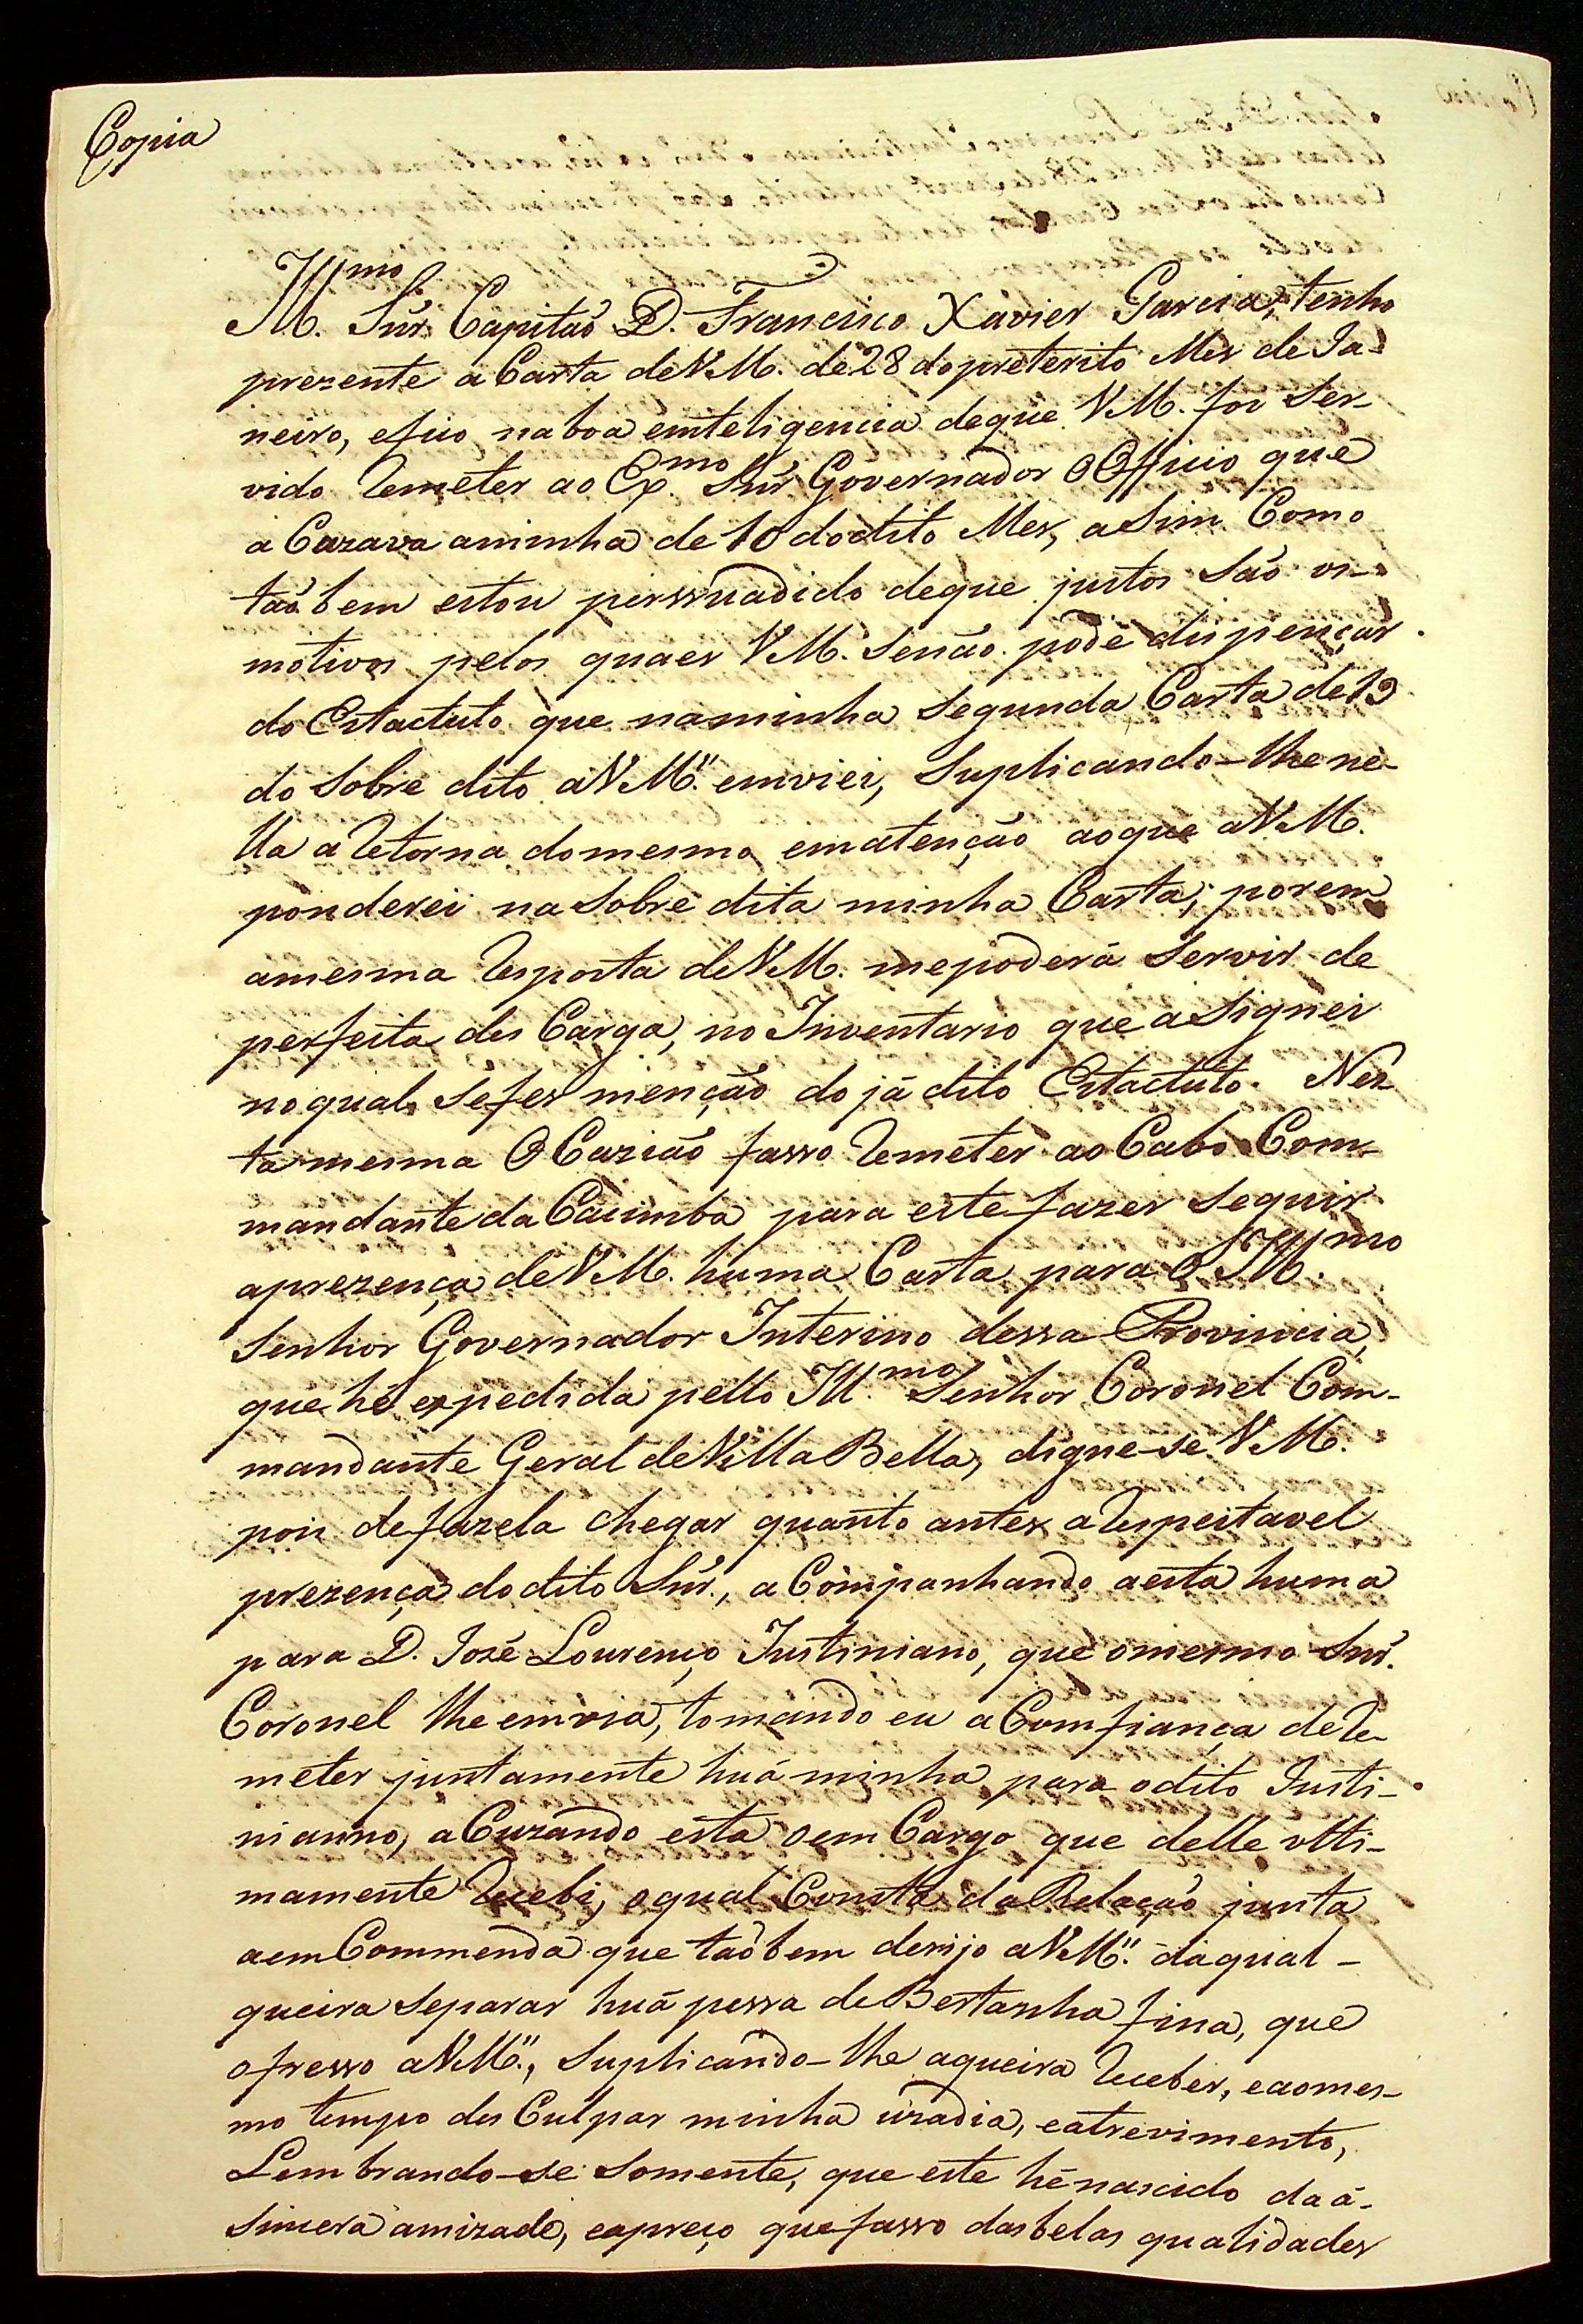 Copia
Ill.mo Snr. Capitaõ D. Francisco Xavier Garcia, tenho
prezente a Carta de VM. de 28 do preterito Mes de Ja-
neiro, e fico na boa emteligencia de que VM. foi Ser-
vido Remeter ao Ex.mo Snr Governador O Officio que
a Cuzava aminha de 10 do dito Mes, aSim Como
taõbem estou perssuadido de que justos Saõ os
motivos pelos quaes VM. Senaõ pode dispençar
do Estactuto que naminha Segunda Carta de 19
do Sobre dito aVM.ce emviei, Suplicando-lhe ne-
lla a Retorna domesmo ematençaõ aoque aVM.
ponderei na Sobre dita minha Carta; porem
amesma Resposta deVM. mepoderá Servir de
perfeita des Carga, no Inventario que aSignei
noqual Sefes mençaõ do já dito Estactuto. Nes-
ta mesma OCaziaõ fasso Remeter ao Cabo Com-
mandante da Cacimba para este fazer Seguir
aprezença deVM. huma Carta para O Ill.mo
Senhor Governador Interino dessa Provincia,
que hé expedida pello Ill.mo Senhor Coronel Com-
mandante Geral deVilla Bella, digne-se VM.
pois defazela chegar quanto antes aRespeitavel
prezença do dito Snr., aCompanhando aesta huma
para D. Jozé Lourenço Justiniano, que omesmo Snr.
Coronel lhe emvia, tomando eu aComfiança deRe-
meter juntamente huá minha para odito Justi-
nianno, aCuzando esta oemCargo que delle ulti-
mamente Recebi, oqual Consta da Relaçaõ junta
aemCommenda que taõbem derijo aVM.ce daqual
queira Separar huá pessa deBertanha fina, que
ofresso aVM.ce, Suplicando-lhe aqueira Receber, eaomes-
mo tempo desCulpar minha uzadia, eatrevimento,
Lembrando-se Somente, que este hé nascido da á-
Sincera amizade, eapreço quefasso dasbelas qualidades